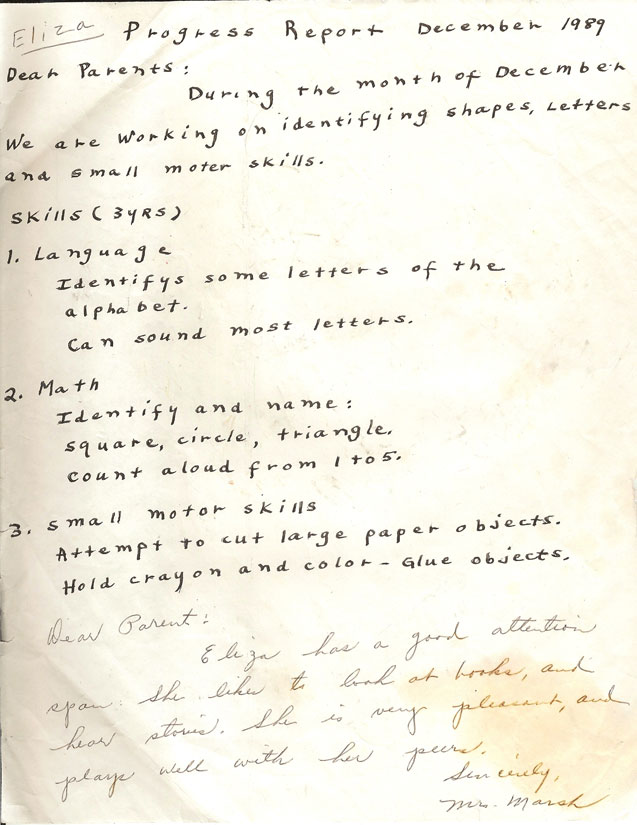 Eliza Progress Report December 1989
Dear Parents:
During the month of December
We are working on identifying shapes, Letters
and small moter skills.
Skills (3 YRS)
1. Language
Identifys some letters of the
alphabet.
Can sound most letters.
2. Math
Identify and name:
square, circle, triangle.
count aloud from 1 to 5.
3. small motor skills
Attempt to cut large paper objects.
Hold crayon and color - Glue objects.
Dear Parent:
Eliza has a good attention
span. She likes to look at books, and
hear stories. She is very pleasant, and
plays well with her peers.
Sincerely,
Mrs. Marsh